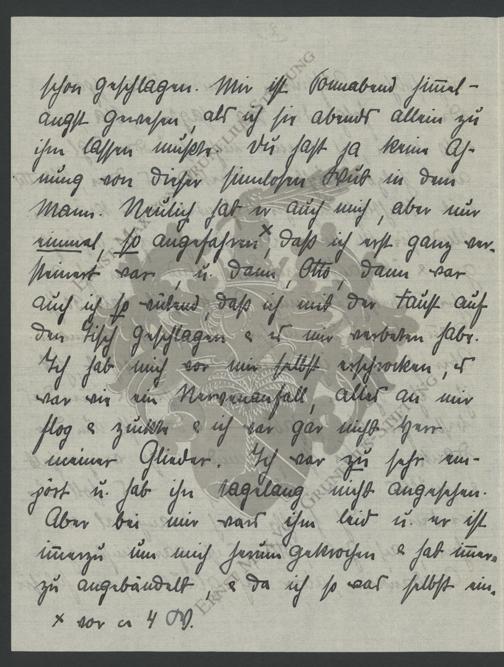 schon geschlagen. Mir ist Sonnabend him̄el-
angst gewesen, als ich sie abends allein zu
ihm lassen mußte. Du hast ja keine Ah-
nung von dieser sinnlosen Wut in dem
Mann. Neulich hat er auch mich, aber nur
einmal, so angefahren ˣ, daß ich erst ganz ver-
steinert war, u. dann, Otto, dann war
auch ich so wütend, daß ich mit der Faust auf
den Tisch geschlagen & es mir verbeten habe.
Ich hab mich vor mir selbst erschrocken, es
war wie ein Nervenanfall, alles an mir
flog & zuckte & ich war gar nicht Herr
meiner Glieder. Ich war zu sehr em-
pört u. hab ihn tagelang nicht angesehen.
Aber bei mir wars ihm leid u. er ist
im̄erzu um mich herum gekrochen & hat im̄er-
zu angebändelt, & da ich so was selbst ein-
x vor ca 4 W.